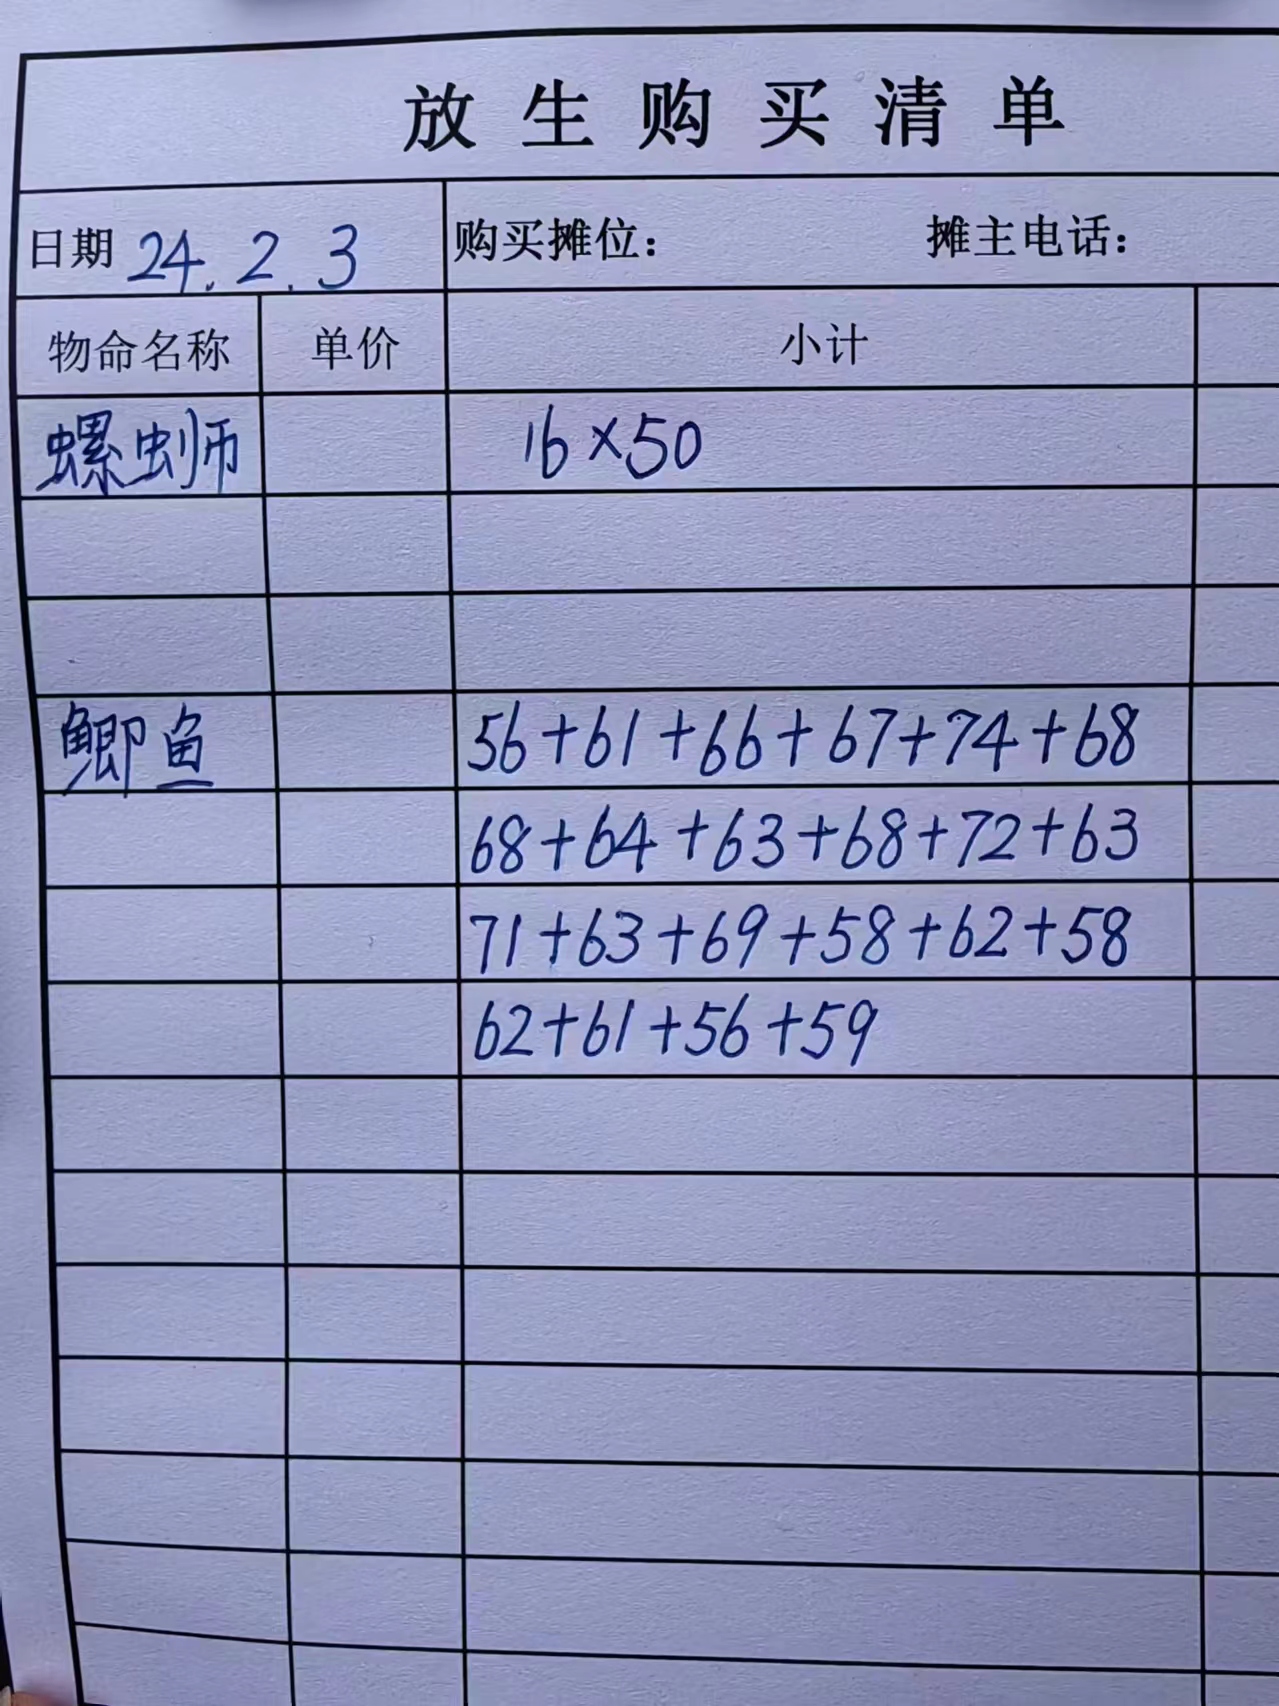 放生购买清单
日期 24.2.3 购买摊位： 摊主电话：
物命名称 单价 小计
螺蛳 16×50
鲫鱼 56+61+66+67+74+68
68+64+63+68+72+63
71+63+69+58+62+58
62+61+56+59